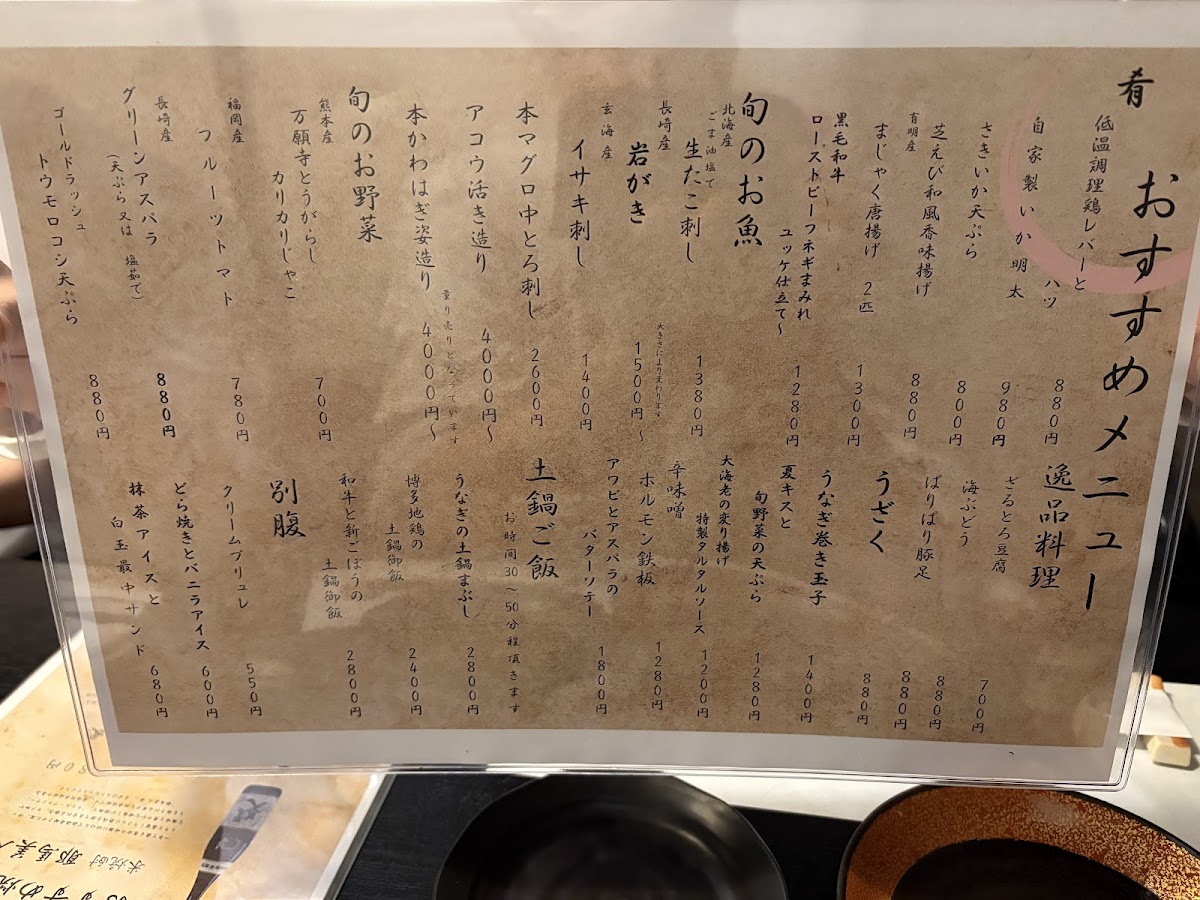 肴 おすすめメニュー
低温調理鶏レバーと
ハツ
880円
自家製いか明太
980円
さきいか天ぷら
800円
芝えび和風香味揚げ
880円
有明産
まじゃく唐揚げ 2匹
1300円
黒毛和牛
ローストビーフネギまみれ
ユッケ仕立て～
1280円
旬のお魚
北海産
ごま油塩で
生たこ刺し
1380円
長崎産
岩がき
大きさにより変わります
1500円～
玄海産
イサキ刺し
1400円
本マグロ中とろ刺し
2600円
アコウ活き造り
4000円～
量り売りとなっています
本かわはぎ姿造り
4000円～
旬のお野菜
熊本産
万願寺とうがらし
カリカリじゃこ
700円
福岡産
フルーツトマト
780円
長崎産
グリーンアスパラ
(天ぷら又は 塩茹で)
880円
ゴールドラッシュ
トウモロコシ天ぷら
880円
逸品料理
ざるとろ豆腐
700円
海ぶどう
880円
ぱりぱり豚足
880円
うざく
880円
うなぎ巻き玉子
1400円
夏キスと
旬野菜の天ぷら
1280円
大海老の変り揚げ
特製タルタルソース
1200円
辛味噌
ホルモン鉄板
1280円
アワビとアスパラの
バターソテー
1800円
土鍋ご飯
お時間30～50分程頂きます
うなぎの土鍋まぶし
2800円
博多地鶏の
土鍋御飯
2400円
和牛と新ごぼうの
土鍋御飯
2800円
別腹
クリームブリュレ
550円
どら焼きとバニラアイス
600円
抹茶アイスと
白玉最中サンド
680円
米焼酎 耶馬美人